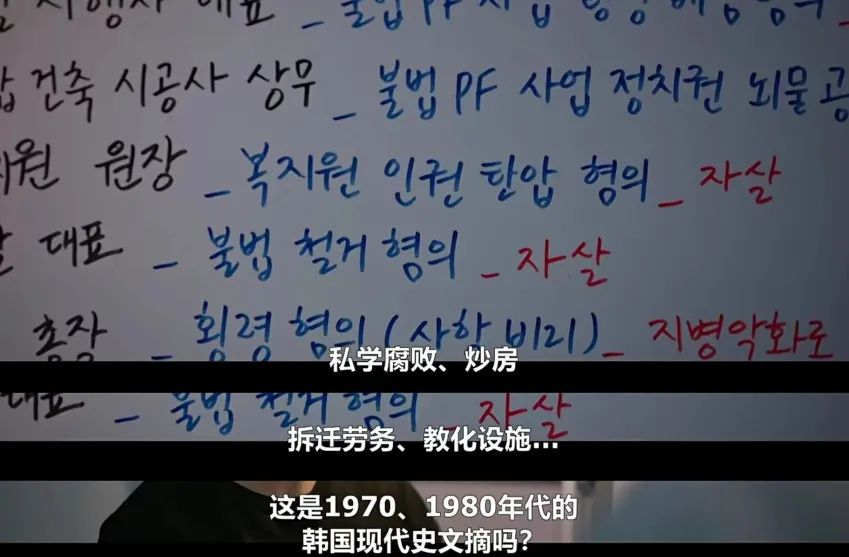 시행사 대표 _ 불법 PF 사업
건축 시공사 상무 _ 불법 PF 사업 정치권 뇌물공
원장 _ 복지원 인권 탄압 혐의 _ 자살
대표 _ 불법 철거 혐의 _ 자살
총장 _ 횡령 혐의 (사학 비리) _ 지병악화로
私学腐败、炒房
대표 _ 불법 철거 혐의 _ 자살
拆迁劳务、教化设施...
这是1970、1980年代的
韩国现代史文摘吗？